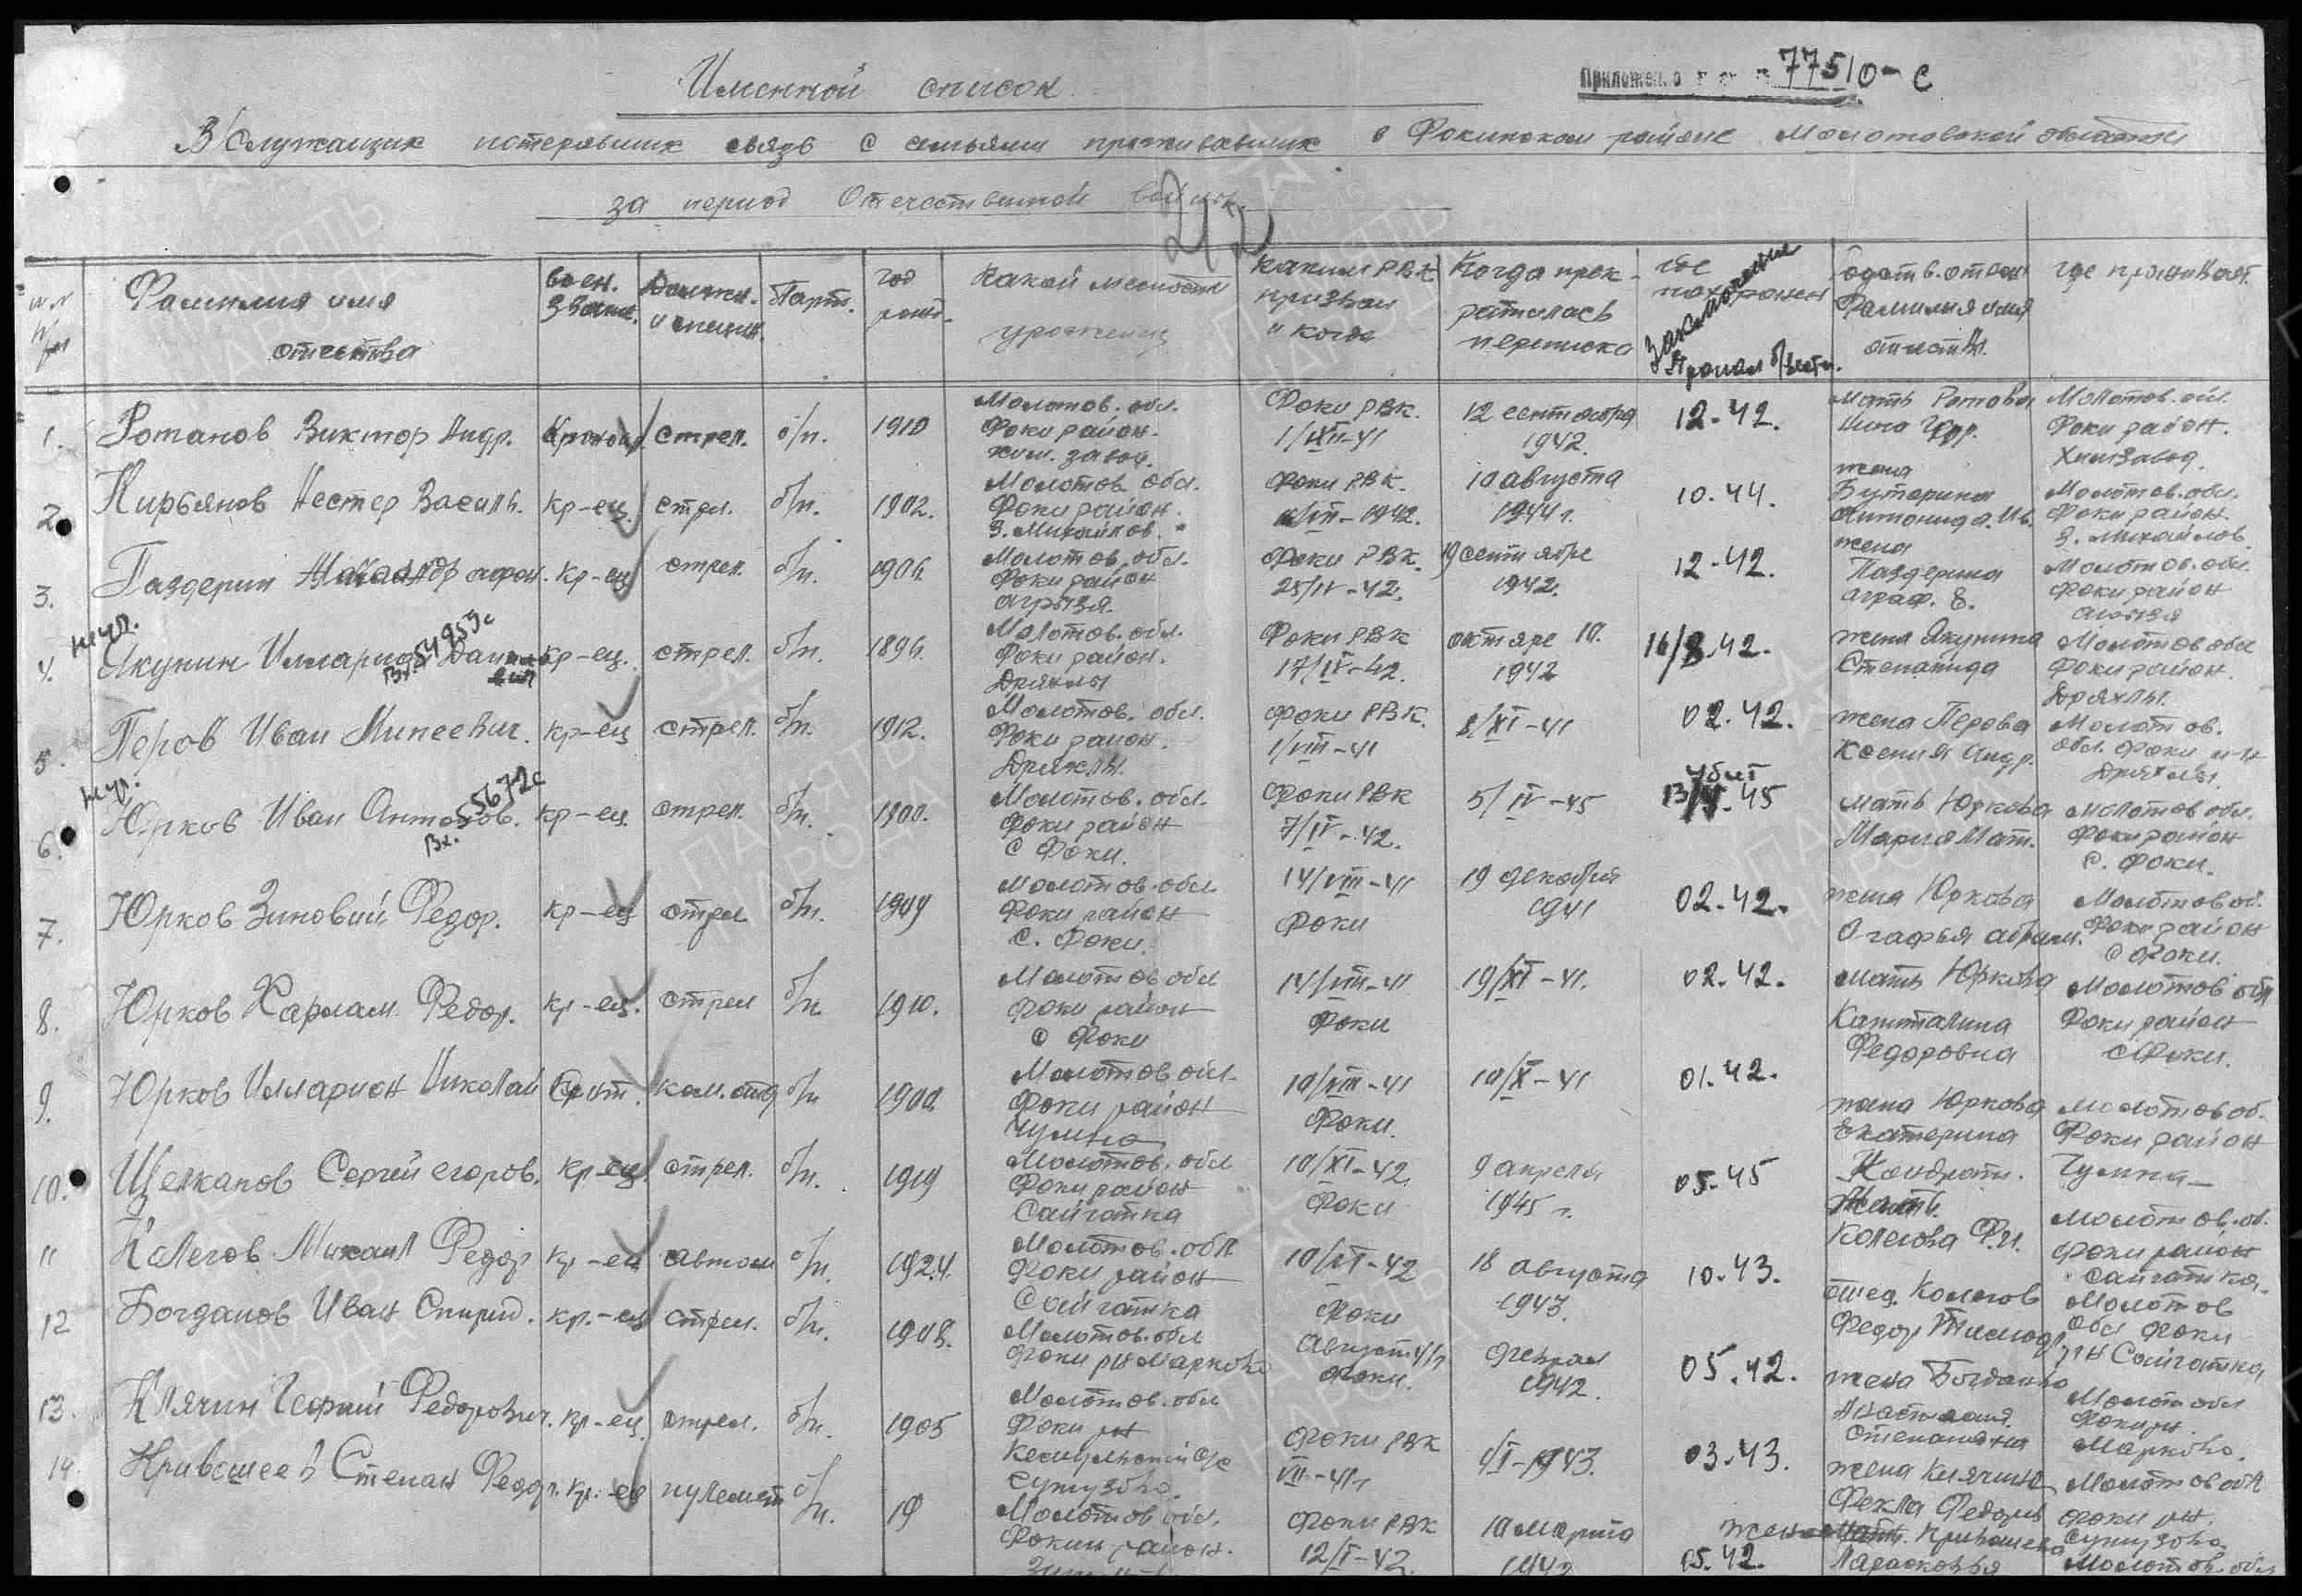 Именной список
77510-с
В/служащих потерявших связь с семьями проживавших в Фокинском районе Молотовской области
за период Отечественной войны.
Фамилия имя отчества
воен. звание.
Должн. и специал.
Парт.
год рожд.
Какой местности уроженец
Каким РВК призван и когда
Когда прекратилась переписка
где похоронен
Заключение
Пропал б/вести.
Фамилия имя отчеств.
где проживает.
1. Потапов Виктор Андр. стрел. б/п. 1910
Молотов. обл. Фоки район. хим. завод.
Фоки РВК.
12 сентября 1942.
12-42.
мать
Молотов. обл. Фоки район. Химзавод.
2. Кирьянов Нестер Василь. кр-ец. стрл. б/п. 1902.
Молотов. обл. Фоки район. З. Михайлов.
Фоки РВК.
10 августа 1944 г.
10-44.
жена Буторина Антонида Ив.
Молотов. обл. Фоки район. З. Михайлов.
3. Паздерин кр-ец стрел. б/п. 1906.
Молотов. обл. Фоки район
Фоки РВК. 25/IV-42.
19 сентября 1942.
12-42.
жена Паздерина Аграф. Е.
Молотов. обл. Фоки район
4. Якунин Илларион кр-ец. стрел. б/п. 1896.
Вх. 54959с
Молотов. обл. Фоки район. Дряхлы
Фоки РВК 17/IV-42.
октябре 1942
16/8.42.
жена Якунина Степанида
Молотов обл Фоки район. Дряхлы.
5. Перов Иван Минеевич. кр-ец стрел. б/п. 1912.
Молотов. обл. Фоки район. Дряхлы.
Фоки РВК. 1/VIII-41
8/XI-41
02.42.
жена Перова Ксения Андр.
Молотов. обл. Фоки р-н Дряхлы.
6. Юрков Иван Антонов. кр-ец. стрел. б/п. 1900.
Вх. 55672с
Молотов. обл. Фоки район с Фоки.
Фоки РВК 7/IV-42.
5/IV-45
убит
мать Юркова Мария Мат.
Молотов обл. Фоки район с. Фоки.
7. Юрков Зиновий Федор. кр-ец стрел б/п. 1909
Молотов. обл Фоки район с. Фоки.
14/VIII-41 Фоки
19 декабря 1941
02.42.
жена Юркова
Молотов об. Фоки район с Фоки.
8. Юрков Харлам. Федор. кр-ец. стрел б/п. 1910.
Молотов обл Фоки район с Фоки
14/VIII-41 Фоки
19/XI-41.
02.42.
мать Юркова Капиталина Федоровна
Молотов обл Фоки район с Фоки.
9. Юрков Илларион Николай ком. отд б/п 1900.
Молотов обл. Фоки район Чумна
10/VIII-41 Фоки.
10/X-41
01.42.
жена Юркова Екатерина Кондрат.
Молотов об. Фоки район Чумна
10. Щелканов Сергей егоров. кр-ец. стрел. б/п. 1919
Молотов. обл Фоки район Сайгатка
10/XI-42. Фоки
9 апреля 1945 г.
05.45
Колегова Ф.И.
Молотов. об. Фоки район Сайгатка.
11 Колегов Михаил Федор кр-ец автом б/п. 1924.
Молотов. обл Фоки район Сайгатка
10/VI-42 Фоки
18 августа 1943.
10.43.
отец. Колегов Федор
Молотов обл Фоки р-н Сайгатка
12 Богданов Иван Спирид. кр.-ец стрел. б/п. 1908.
Молотов. обл Фоки рн Марково
Август 41г Фоки.
феврал 1942.
05.42.
жена Богданова Анастасия. Степановна
Молотов обл Фоки рн. Марково.
13. Клячин Георгий Федорович. кр-ец. стрел. б/п. 1905
Молотов. обл Фоки рн
Фоки РВК VII-41г
03.43.
жена Клячина Фекла Федоров
Молотов обл Фоки рн.
14. Кривошеев Степан Федор. кр.-ец пулемет б/п. 19
Молотов обл. Фокин район.
Фоки РВК 12/I-42.
10 марта 1942
05.42.
жена Парасковья
Молотов. обл